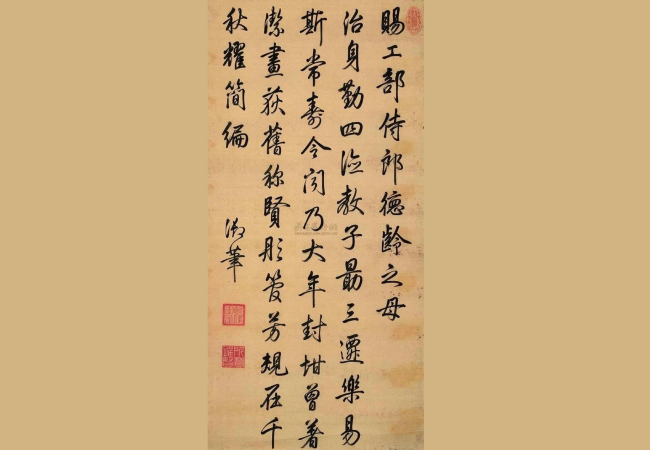 賜工部侍郎德齡之母
治身勤四濨教子勗三遷樂易
斯常壽令闻乃大年封坩曾著
潔畫荻舊称賢彤管芳規在千
秋耀简编
御筆